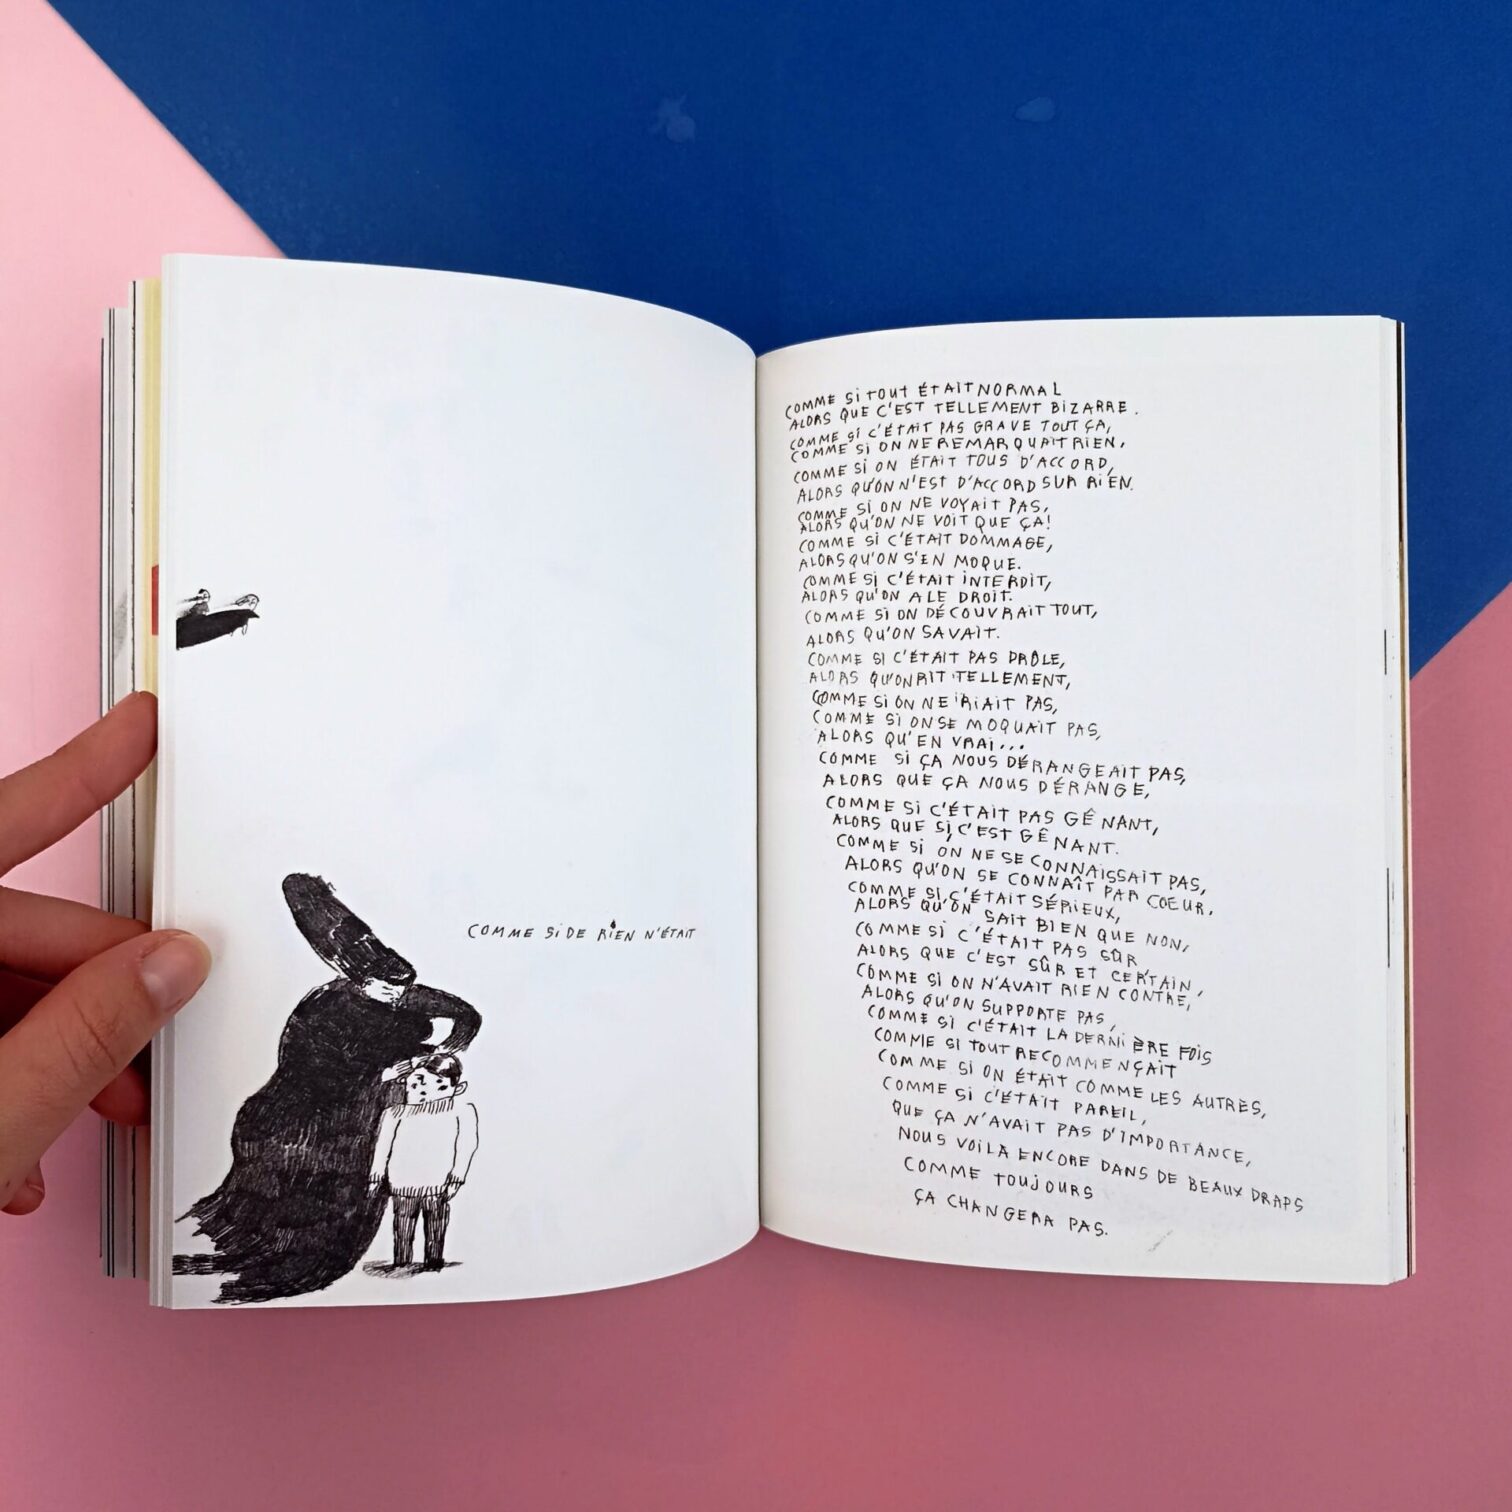 COMME SI DE RIEN N'ÉTAIT
COMME SI TOUT ÉTAIT NORMAL
ALORS QUE C'EST TELLEMENT BIZARRE.
COMME SI C'ÉTAIT PAS GRAVE TOUT ÇA,
COMME SI ON NE REMARQUAIT RIEN,
COMME SI ON ÉTAIT TOUS D'ACCORD,
ALORS QU'ON N'EST D'ACCORD SUR RIEN.
COMME SI ON NE VOYAIT PAS,
ALORS QU'ON NE VOIT QUE ÇA!
COMME SI C'ÉTAIT DOMMAGE,
ALORS QU'ON S'EN MOQUE.
COMME SI C'ÉTAIT INTERDIT,
ALORS QU'ON A LE DROIT.
COMME SI ON DÉCOUVRAIT TOUT,
ALORS QU'ON SAVAIT.
COMME SI C'ÉTAIT PAS DRÔLE,
ALORS QU'ON RIT TELLEMENT,
COMME SI ON NE RIAIT PAS,
COMME SI ON SE MOQUAIT PAS,
ALORS QU'EN VRAI...
COMME SI ÇA NOUS DÉRANGEAIT PAS,
ALORS QUE ÇA NOUS DÉRANGE,
COMME SI C'ÉTAIT PAS GÊNANT,
ALORS QUE SI, C'EST GÊNANT.
COMME SI ON NE SE CONNAISSAIT PAS,
ALORS QU'ON SE CONNAÎT PAR COEUR.
COMME SI C'ÉTAIT SÉRIEUX,
ALORS QU'ON SAIT BIEN QUE NON,
COMME SI C'ÉTAIT PAS SÛR
ALORS QUE C'EST SÛR ET CERTAIN,
COMME SI ON N'AVAIT RIEN CONTRE,
ALORS QU'ON SUPPORTE PAS,
COMME SI C'ÉTAIT LA DERNIÈRE FOIS
COMME SI TOUT RECOMMENÇAIT
COMME SI ON ÉTAIT COMME LES AUTRES,
COMME SI C'ÉTAIT PAREIL,
QUE ÇA N'AVAIT PAS D'IMPORTANCE,
NOUS VOILÀ ENCORE DANS DE BEAUX DRAPS
COMME TOUJOURS
ÇA CHANGERA PAS.